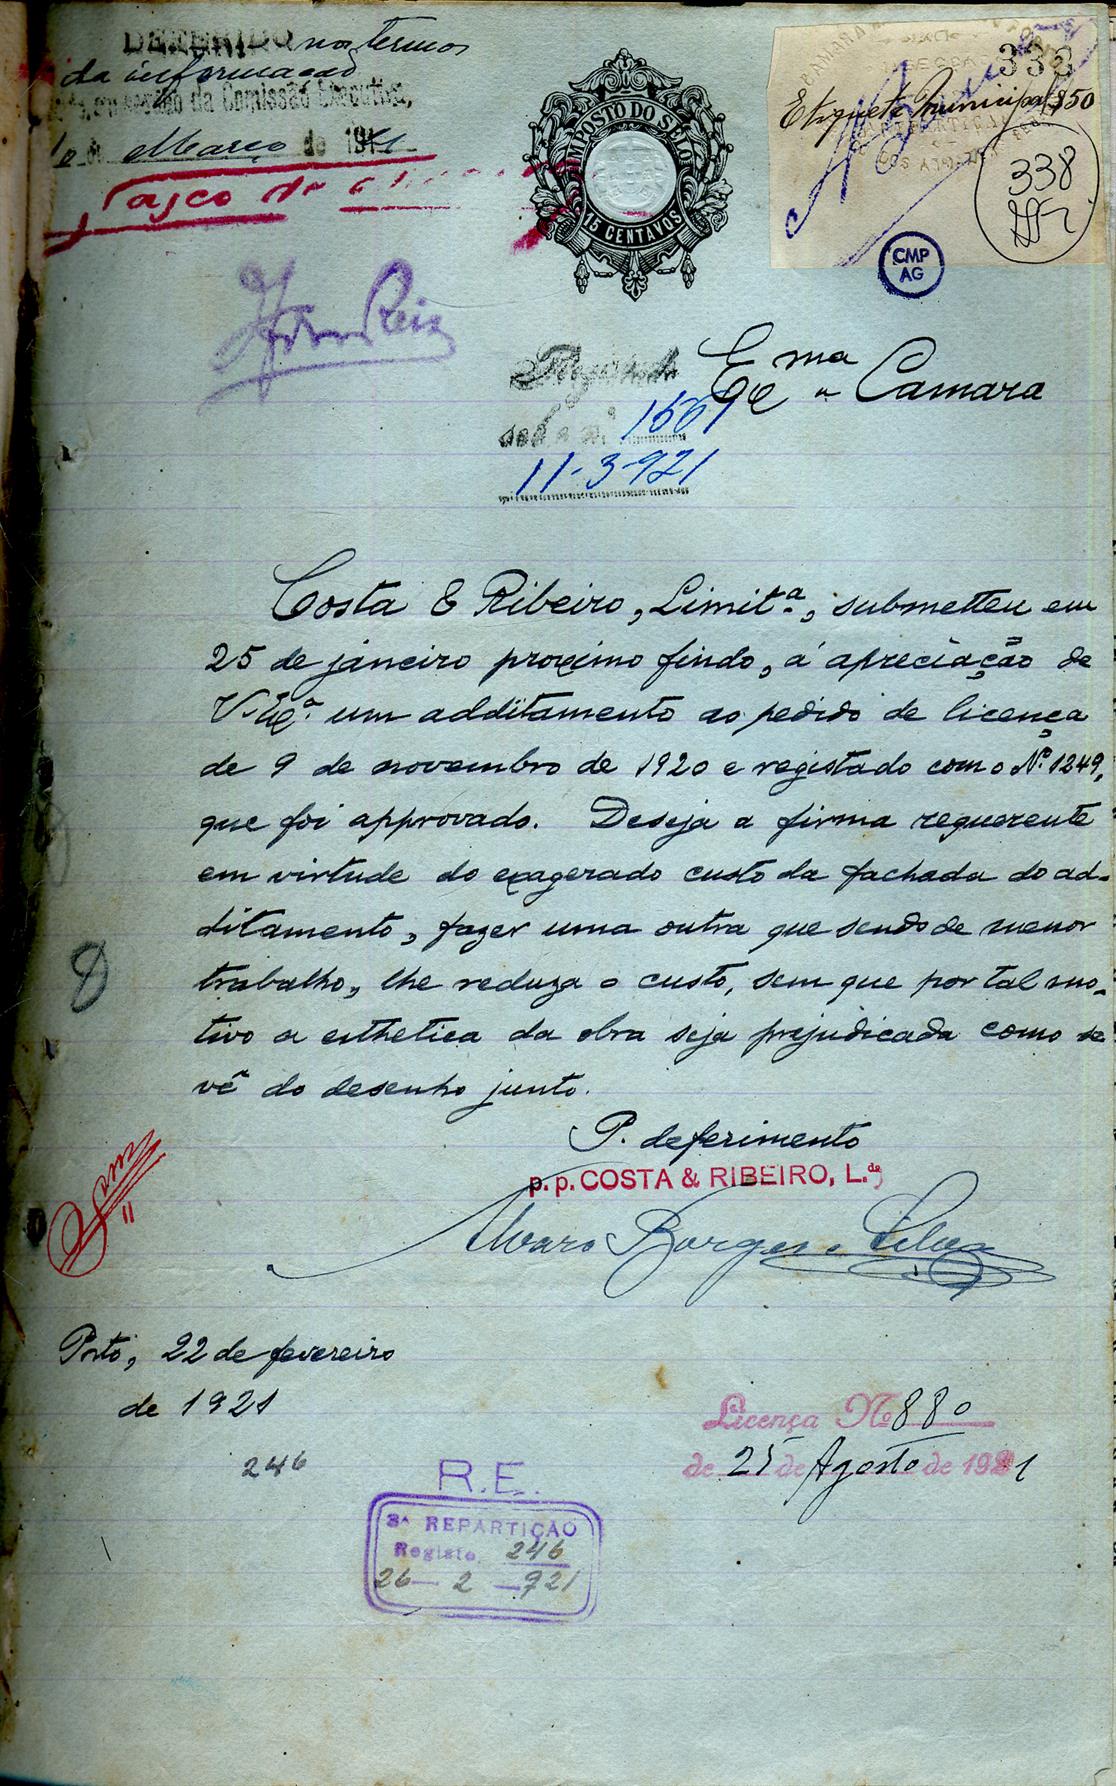 DEFERIDO nos termos
da informação
sessão da Comissão Executiva,
de Março de 19
IMPOSTO DO SELO
15 CENTAVOS
338
Etiqueta Municipal $50
338
CMP
AG
Registado
sob o n.º 1561
11-3-921
Exma Camara
Costa & Ribeiro, Limit.ª, submetteu em
25 de janeiro proximo findo, á apreciação de
V. Exª. um additamento ao pedido de licença
de 9 de novembro de 1920 e registado com o Nº. 1249,
que foi approvado. Deseja a firma requerente
em virtude do exagerado custo da fachada do ad-
ditamento, fazer uma outra que sendo de menor
trabalho, lhe reduza o custo, sem que por tal mo-
tivo a esthetica da obra seja prejudicada como se
vê do desenho junto.
P. deferimento
p. p. COSTA & RIBEIRO, L.da
Alvaro Borges e Silva
Porto, 22 de fevereiro
de 1921
246
Licença Nº 880
de 25 de Agosto de 1921
R.E.
3ª REPARTIÇÃO
Registo 246
26 - 2 - 921